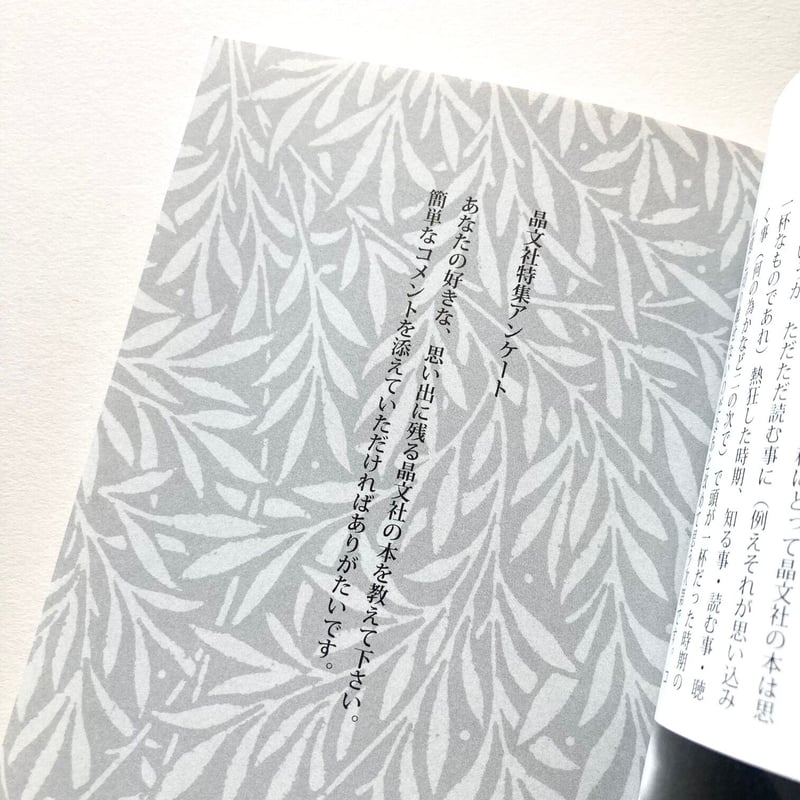 にとって晶文社の本は思
ただただ読む事に（例えそれが思い込み
一杯なものであれ）熱狂した時期、知る事・読む事・聴
く事（何の為かなど二の次で）で頭が一杯だった時期の
晶文社特集アンケート
あなたの好きな、思い出に残る晶文社の本を教えて下さい。
簡単なコメントを添えていただければありがたいです。